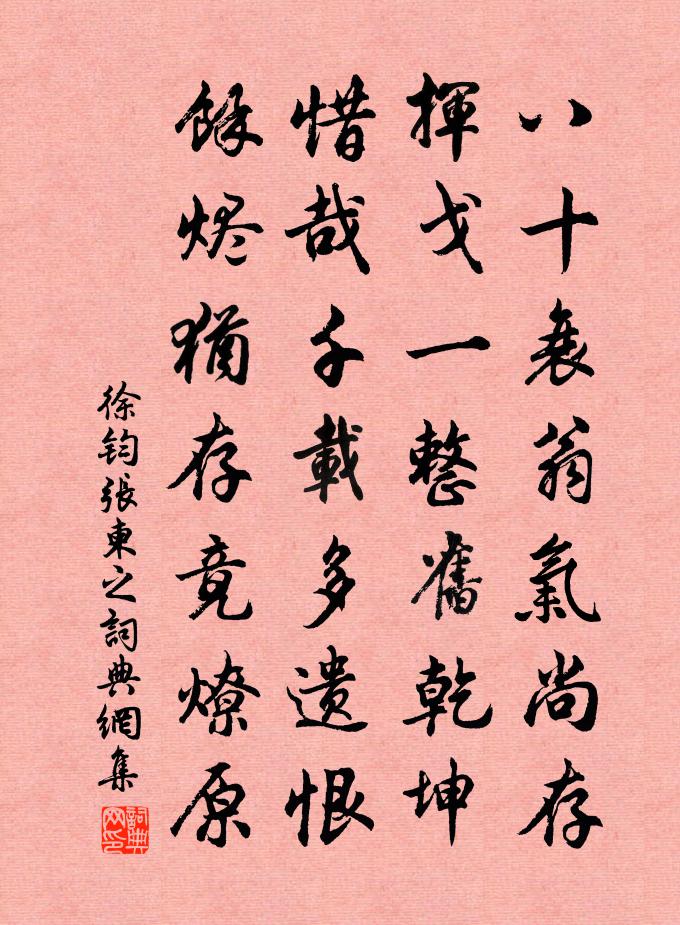 八十衰翁氣尚存
揮戈一整舊乾坤
惜哉千載多遺恨
餘烬猶存竟燎原
徐鈞張東之詞典網集
詞典网印